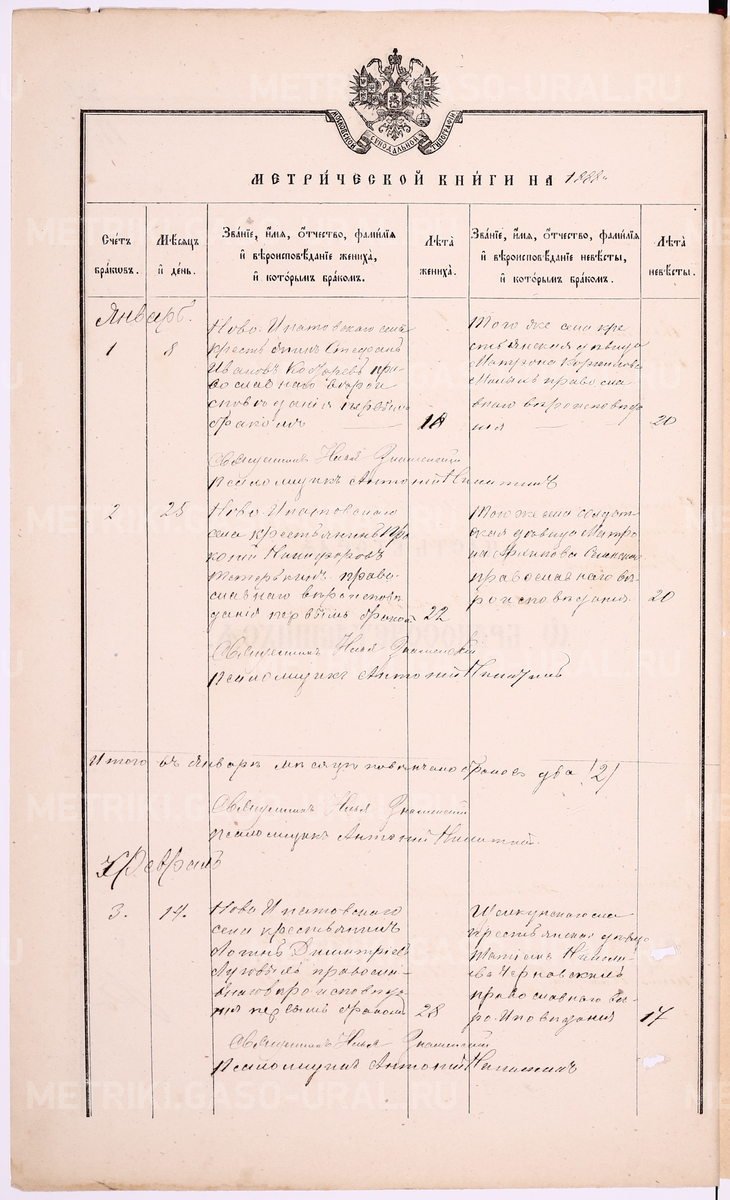 METRIKI.GASO-URAL.RU
МОСКОВСКОЙ СѴНОДАЛЬНОЙ ТИПОГРАФІИ
МЕТРИ́ЧЕСКОЙ КНИ́ГИ НА 1888 г.
Сче́тъ бра́кωвъ.
Мѣ́сяцъ и҆ де́нь.
Зва́нїе, и҆́мя, ѻ҆́тчество, фами́лїя и҆ вѣроисповѣ́данїе жениха̀, и҆ кото́рымъ бра́комъ.
Лѣ́та жениха̀.
Зва́нїе, и҆́мя, ѻ҆́тчество, фами́лїя и҆ вѣроисповѣ́данїе невѣ́сты, и҆ кото́рымъ бра́комъ.
Лѣ́та невѣ́сты.
Январь.
1
8
Ново-Ипатовскаго села
крестьянинъ Стефанъ
Ивановъ пра
вославнаго вѣрои
сповѣданія первымъ
бракомъ
18
Того же села кре
стьянская дѣвица
Матрона
православ
наго вѣроисповѣда
нія
20
Священникъ Илья Знаменскій
Псаломщикъ Антоній Никитинъ
2
25
Ново-Ипатовскаго
села крестьянинъ Про
копій Никифоровъ
право
славнаго вѣроисповѣ
данія первымъ бракомъ
22
Того же села солдат
ская дѣвица Матро
на
православнаго вѣ
роисповѣданія
20
Священникъ Илья Знаменскій
Псаломщикъ Антоній Никитинъ
Итого въ Январѣ мѣсяцѣ повѣнчано браковъ два (2)
Священникъ Илья Знаменскій
Псаломщикъ Антоній Никитинъ.
Февраль
3.
14.
Ново Ипатовскаго
села крестьянинъ
Логинъ Димитріевъ
правосла-
внаго вѣроисповѣда
нія первымъ бракомъ
28
Щелкунскаго села
крестьянская дѣвица
православнаго вѣ-
роисповѣданія
17
Священникъ Илья Знаменскій
Псаломщикъ Антоній Никитинъ
METRIKI.GASO-URAL.RU